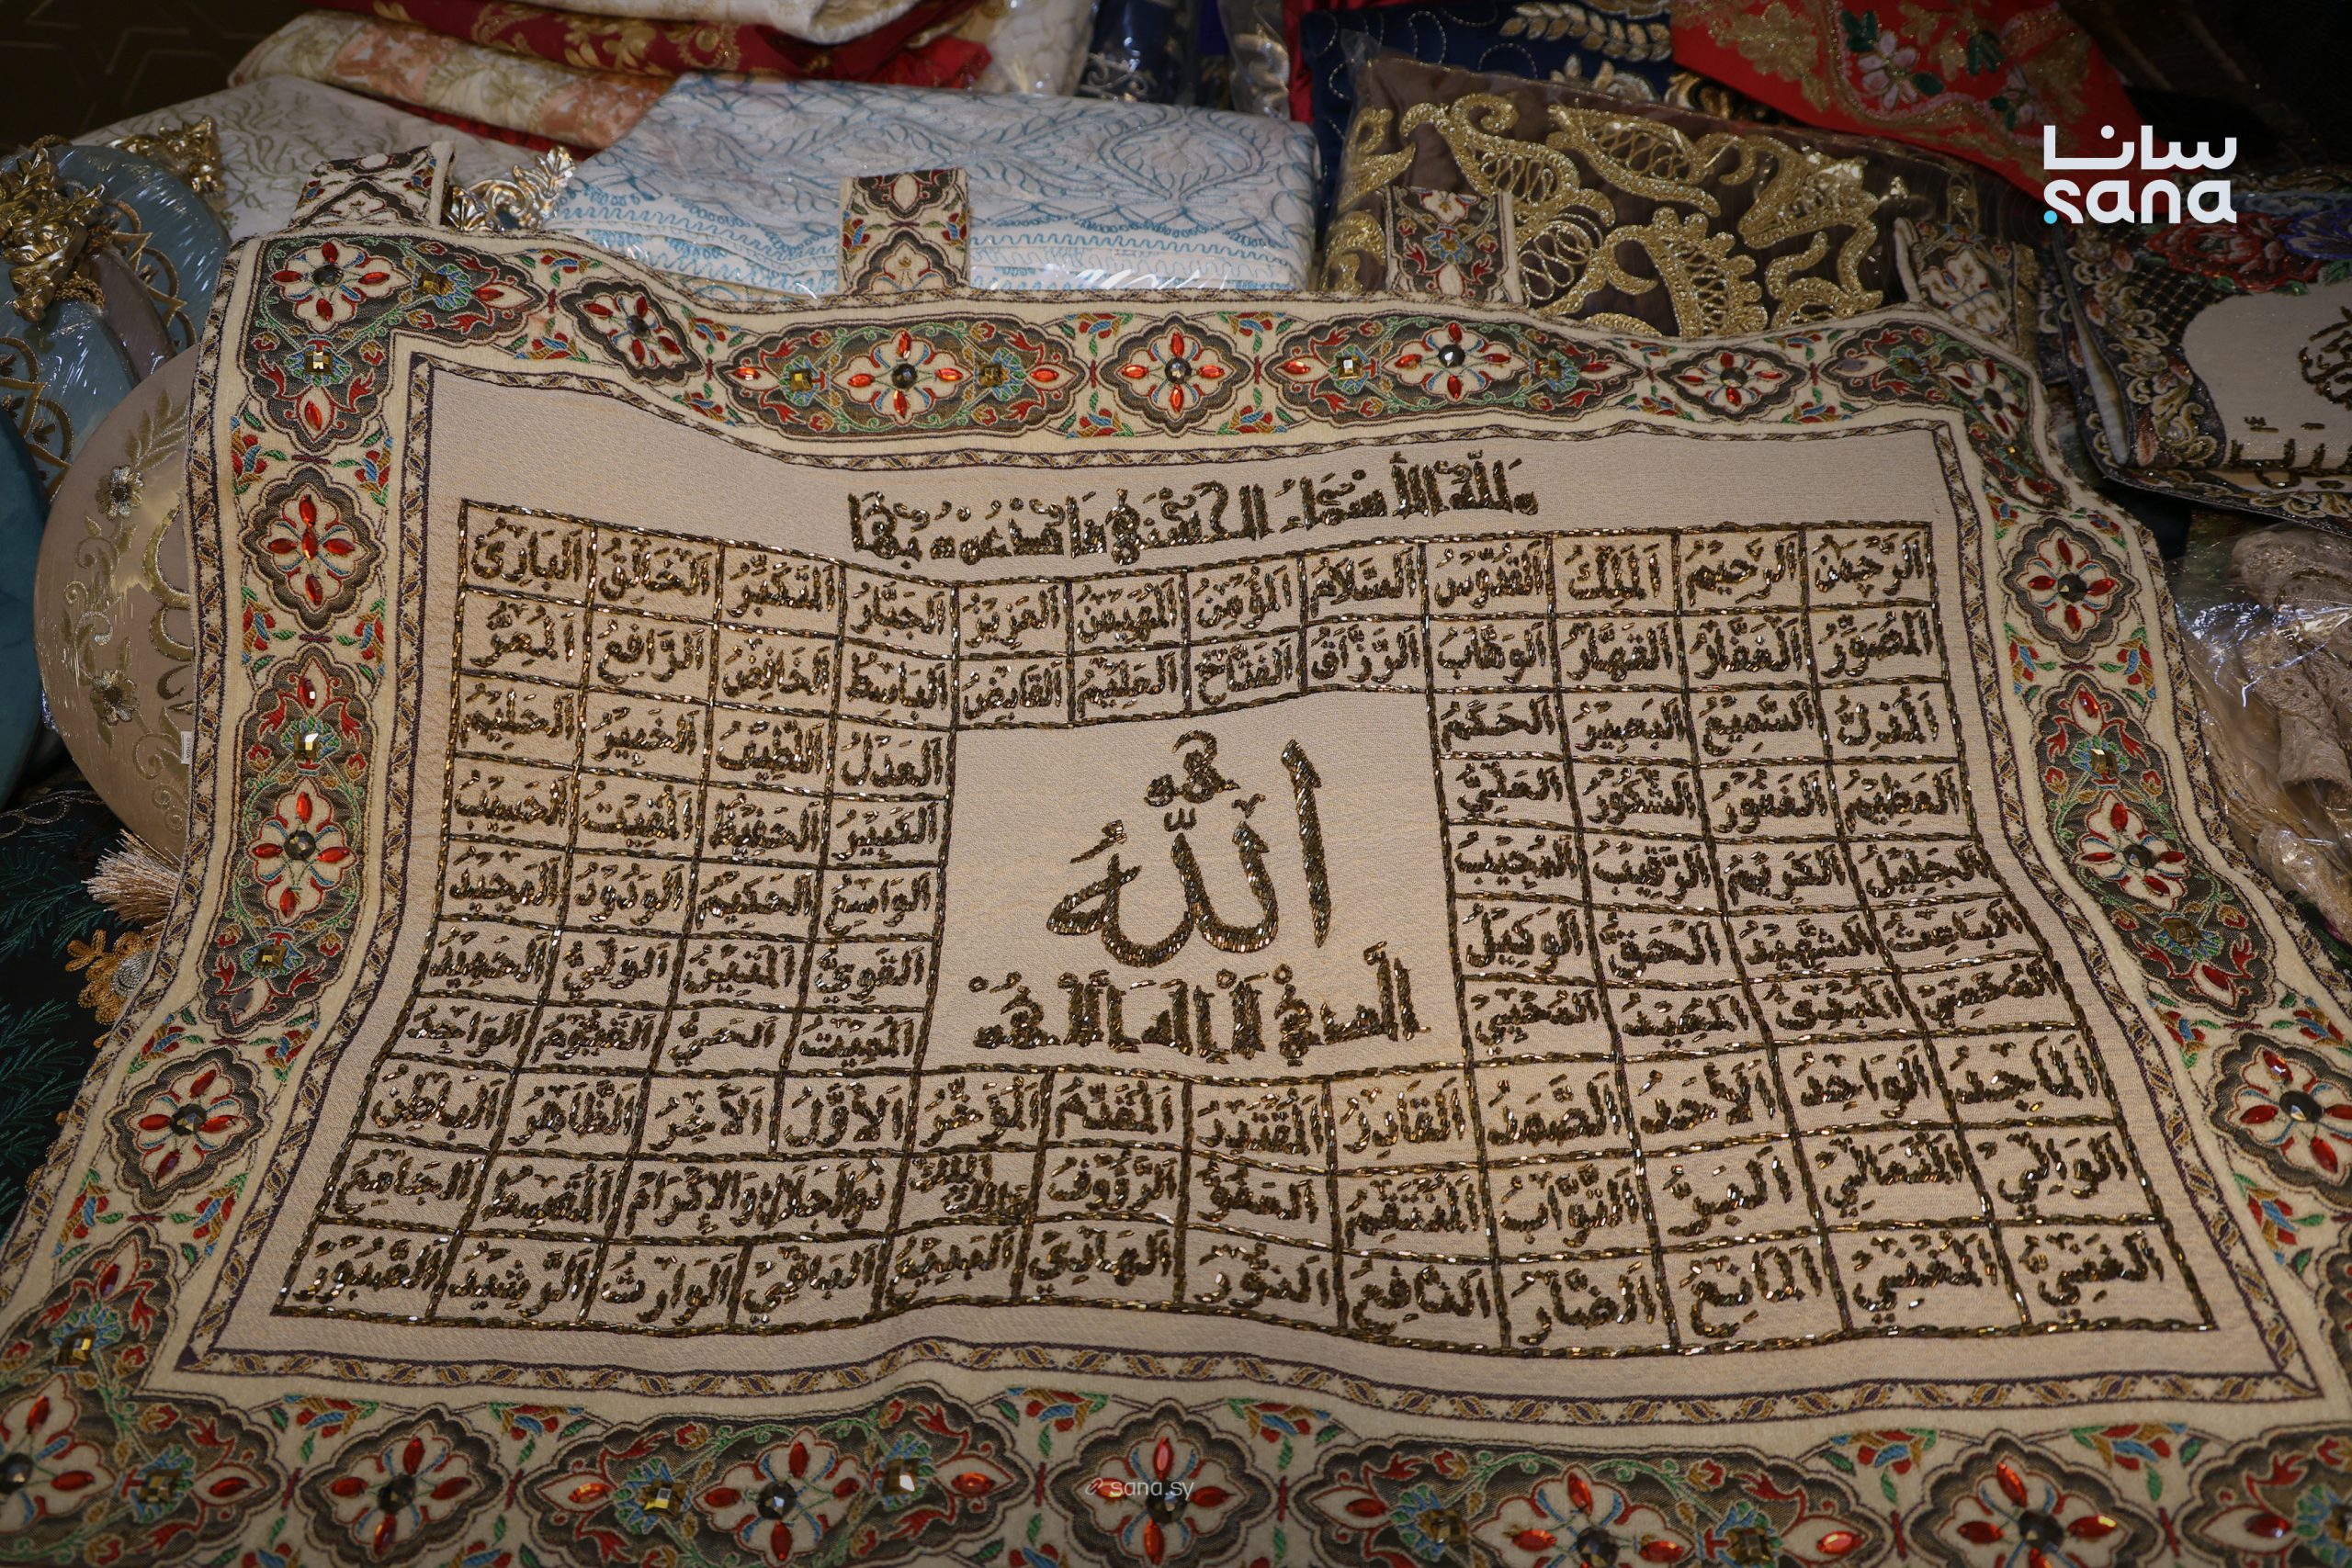 سانا
sana
وَلِلّهِ الأَسْمَاءُ الحُسْنَى فَادْعُوهُ بِهَا
الرَّحْمنُ الرَّحِيمُ المَلِكُ القُدُّوسُ السَّلَامُ المُؤْمِنُ المُهَيْمِنُ العَزِيزُ الجَبَّارُ المُتَكَبِّرُ الخَالِقُ البَارِئُ
المُصَوِّرُ الغَفَّارُ القَهَّارُ الوَهَّابُ الرَّزَّاقُ الفَتَّاحُ العَلِيمُ القَابِضُ البَاسِطُ الخَافِضُ الرَّافِعُ المُعِزُّ
المُذِلُّ السَّمِيعُ البَصِيرُ الحَكَمُ العَدْلُ اللَّطِيفُ الخَبِيرُ الحَلِيمُ
العَظِيمُ الغَفُورُ الشَّكُورُ العَلِيُّ الكَبِيرُ الحَفِيظُ المُقِيتُ الحَسِيبُ
الجَلِيلُ الكَرِيمُ الرَّقِيبُ المُجِيبُ الوَاسِعُ الحَكِيمُ الوَدُودُ المَجِيدُ
البَاعِثُ الشَّهِيدُ الحَقُّ الوَكِيلُ القَوِيُّ المَتِينُ الوَلِيُّ الحَمِيدُ
المُحْصِي المُبْدِئُ المُعِيدُ المُحْيِي المُمِيتُ الحَيُّ القَيُّومُ الوَاجِدُ
هو
اللّهُ
الَّذِي لَا إِلَهَ إِلَّا هُوَ
المَاجِدُ الوَاحِدُ الأَحَدُ الصَّمَدُ القَادِرُ المُقْتَدِرُ المُقَدِّمُ المُؤَخِّرُ الأَوَّلُ الآخِرُ الظَّاهِرُ البَاطِنُ
الوَالِي المُتَعَالِي البَرُّ التَّوَّابُ المُنْتَقِمُ العَفُوُّ الرَّؤُوفُ مَالِكُ المُلْكِ ذُو الجَلَالِ وَالإِكْرَامِ المُقْسِطُ الجَامِعُ
الغَنِيُّ المُغْنِي المَانِعُ الضَّارُّ النَّافِعُ النُّورُ الهَادِي البَدِيعُ البَاقِي الوَارِثُ الرَّشِيدُ الصَّبُورُ
sana.sy